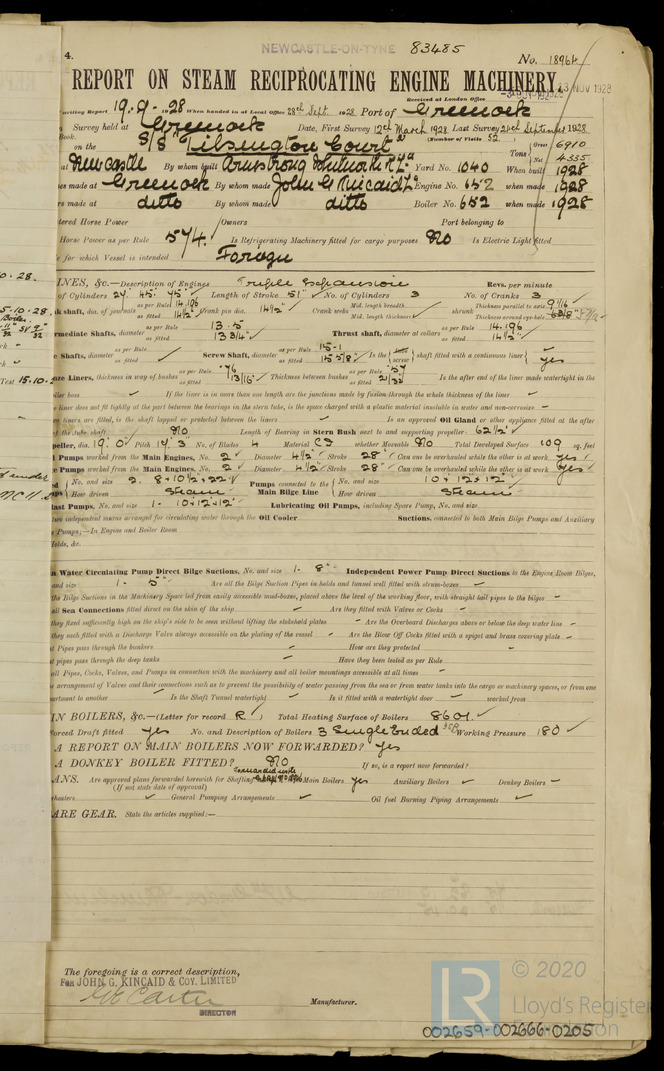 4. NEWCASTLE-ON-TYNE 83485 No. 18964
REPORT ON STEAM RECIPROCATING ENGINE MACHINERY.
NOV 1928
Received at London Office
writing Report 19.9.1928 When handed in at Local Office 28th Sept. 1928 Port of Greenock
Survey held at Greenock Date, First Survey 12th March 1928 Last Survey 21st September 1928
Book. (Number of Visits 52)
on the S/S "Tilsington Court" Tons Gross 6910 Net 4335
at Newcastle By whom built Armstrong Whitworth & Co Ld Yard No. 1040 When built 1928
es made at Greenock By whom made John G Kincaid & Co Ld Engine No. 652 when made 1928
rs made at ditto By whom made ditto Boiler No. 652 when made 1928
tered Horse Power Owners Port belonging to
Horse Power as per Rule 574. Is Refrigerating Machinery fitted for cargo purposes No Is Electric Light fitted
e for which Vessel is intended Foreign
INES, &c.—Description of Engines Triple Expansion Revs. per minute
of Cylinders 27" 45" 75" Length of Stroke 51" No. of Cylinders 3 No. of Cranks 3
k shaft, dia. of journals as per Rule 14.196 as fitted 14 1/2" Crank pin dia. 14 1/2" Crank webs Mid. length breadth Mid. length thickness shrunk Thickness parallel to axis 9 1/16" Thickness around eye-hole
ermediate Shafts, diameter as per Rule 13.5" as fitted 13 3/4" Thrust shaft, diameter at collars as per Rule 14.196 as fitted 14 1/2"
e Shafts, diameter as per Rule as fitted Screw Shaft, diameter as per Rule 15.1 as fitted 15 5/8" Is the screw shaft fitted with a continuous liner yes
ze Liners, thickness in way of bushes as per Rule .76 as fitted 13/16" Thickness between bushes as per Rule .57 as fitted 21/32" Is the after end of the liner made watertight in the
ller boss If the liner is in more than one length are the junctions made by fusion through the whole thickness of the liner
e liner does not fit tightly at the part between the bearings in the stern tube, is the space charged with a plastic material insoluble in water and non-corrosive
liners are fitted, is the shaft lapped or protected between the liners Is an approved Oil Gland or other appliance fitted at the after
of the tube shaft No Length of Bearing in Stern Bush next to and supporting propeller 62 1/2"
peller, dia. 19'.0" Pitch 17'.3" No. of Blades 4 Material C.I. whether Moveable No Total Developed Surface 109 sq. feet
d Pumps worked from the Main Engines, No. 2 Diameter 4 1/2" Stroke 28" Can one be overhauled while the other is at work yes
ge Pumps worked from the Main Engines, No. 2 Diameter 4 1/2" Stroke 28" Can one be overhauled while the other is at work yes
No. and size 2. 8 × 10 1/2 × 22" Pumps connected to the Main Bilge Line No. and size 10 × 12 × 12"
How driven Steam How driven Steam
last Pumps, No. and size 1- 10 × 12 × 12" Lubricating Oil Pumps, including Spare Pump, No. and size
two independent means arranged for circulating water through the Oil Cooler Suctions, connected to both Main Bilge Pumps and Auxiliary
e Pumps;—In Engine and Boiler Room
Holds, &c.
n Water Circulating Pump Direct Bilge Suctions, No. and size 1- 8" Independent Power Pump Direct Suctions to the Engine Room Bilges,
and size 1- 5" Are all the Bilge Suction Pipes in holds and tunnel well fitted with strum-boxes
the Bilge Suctions in the Machinery Space led from easily accessible mud-boxes, placed above the level of the working floor, with straight tail pipes to the bilges
all Sea Connections fitted direct on the skin of the ship Are they fitted with Valves or Cocks
they fixed sufficiently high on the ship's side to be seen without lifting the stokehold plates Are the Overboard Discharges above or below the deep water line
they each fitted with a Discharge Valve always accessible on the plating of the vessel Are the Blow Off Cocks fitted with a spigot and brass covering plate
t Pipes pass through the bunkers How are they protected
t pipes pass through the deep tanks Have they been tested as per Rule
all Pipes, Cocks, Valves, and Pumps in connection with the machinery and all boiler mountings accessible at all times
e arrangement of Valves and their connections such as to prevent the possibility of water passing from the sea or from water tanks into the cargo or machinery spaces, or from one
artment to another Is the Shaft Tunnel watertight Is it fitted with a watertight door worked from
IN BOILERS, &c.—(Letter for record R) Total Heating Surface of Boilers 8601
orced Draft fitted yes No. and Description of Boilers 3 Single Ended Working Pressure 180
A REPORT ON MAIN BOILERS NOW FORWARDED? yes
A DONKEY BOILER FITTED? No If so, is a report now forwarded?
ANS. Are approved plans forwarded herewith for Shafting Main Boilers yes Auxiliary Boilers Donkey Boilers
(If not state date of approval)
heaters General Pumping Arrangements Oil fuel Burning Piping Arrangements
ARE GEAR. State the articles supplied:—
The foregoing is a correct description,
FOR JOHN G. KINCAID & COY. LIMITED
DIRECTOR
Manufacturer.
LR © 2020
Lloyd's Register
Foundation
002659-002666-0205